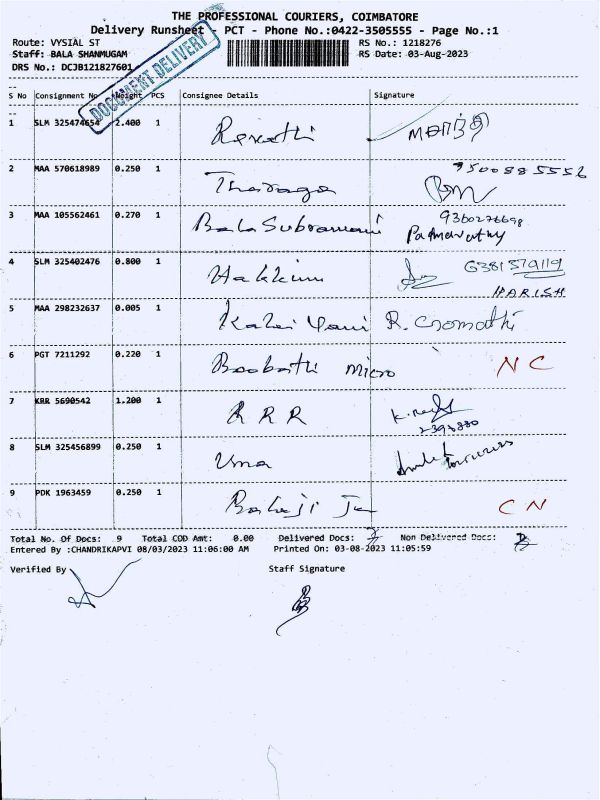 THE PROFESSIONAL COURIERS, COIMBATORE
Delivery Runsheet - PCT - Phone No.:0422-3505555 - Page No.:1
Route: VYSIAL ST RS No.: 1218276
Staff: BALA SHANMUGAM RS Date: 03-Aug-2023
DRS No.: DCJB121827601
DOCUMENT DELIVERY
S No Consignment No Weight PCS Consignee Details Signature
1 SLM 325474654 2.400 1 Revathi
2 MAA 570618989 0.250 1 Tharaga
3 MAA 105562461 0.270 1 BalaSubramani 9360276698
Padmavathy
4 SLM 325402476 0.800 1 Hakkim 6381579119
HARISH
5 MAA 298232637 0.005 1 Kalai Vani R. Gomathi
6 PGT 7211292 0.220 1 Boobathi micro NC
7 KRR 5690542 1.200 1 RRR
8 SLM 325456899 0.250 1 Uma
9 PDK 1963459 0.250 1 Balaji CN
Total No. Of Docs: 9 Total COD Amt: 0.00 Delivered Docs: 7 Non Delivered Docs: 2
Entered By :CHANDRIKAPVI 08/03/2023 11:06:00 AM Printed On: 03-08-2023 11:05:59
Verified By Staff Signature